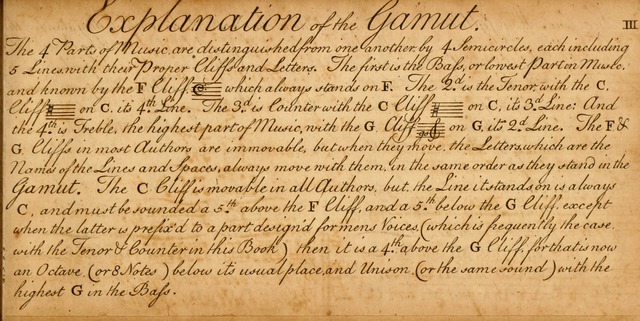 Explanation of the Gamut.
III
The 4 Parts of Music, are distinguished from one another, by 4 Semicircles, each including
5 Lines with their Proper Cliffs and Letters. The first is the Bass, or lowest Part in Music,
and known by the F Cliff which always stands on F. The 2.d is the Tenor with the C.
Cliff on C, its 4.th Line. The 3.d is Counter with the C Cliff on C, its 3.d Line: And
the 4.th is Treble, the highest part of Music, with the G Cliff on G, its 2.d Line. The F &
G. Cliffs in most Authors are immovable, but when they move, the Letters, which are the
Names of the Lines and Spaces, always move with them, in the same order as they stand in the
Gamut. The C Cliff is movable in all Authors, but, the Line it stands on is always
C, and must be sounded a 5.th above the F Cliff, and a 5.th below the G Cliff. except
when the latter is prefix'd to a part design'd for mens Voices, (which is frequently the case,
with the Tenor & Counter in this Book) then it is a 4.th above the G Cliff, for that is now
an Octave (or 8 Notes) below its usual place, and Unison (or the same sound) with the
highest G in the Bass.